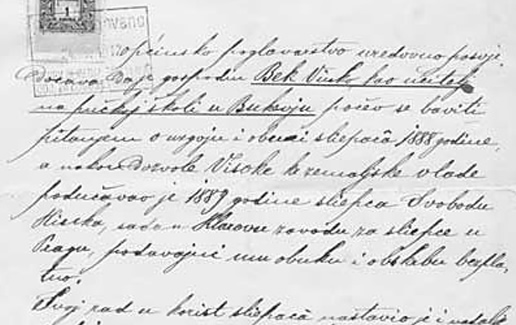 1
Općinsko poglavarstvo uredovno posvje-
dočava da je gospodin Bek Vinko kao učitelj
na pučkoj školi u Bukevju počeo se baviti
pitanjem o uzgoju i obuci sliepacâ 1888 godine,
a nakon dozvole Visoke kr zemaljske vlade
podučavao je 1889 godine sliepca Svobodu
sada u Klarovu zavodu za sliepce u
Pragu, podavajući mu obuku i obskrbu bezpla-
tno.
Svoj rad u korist sliepacâ nastavio je i nadalje